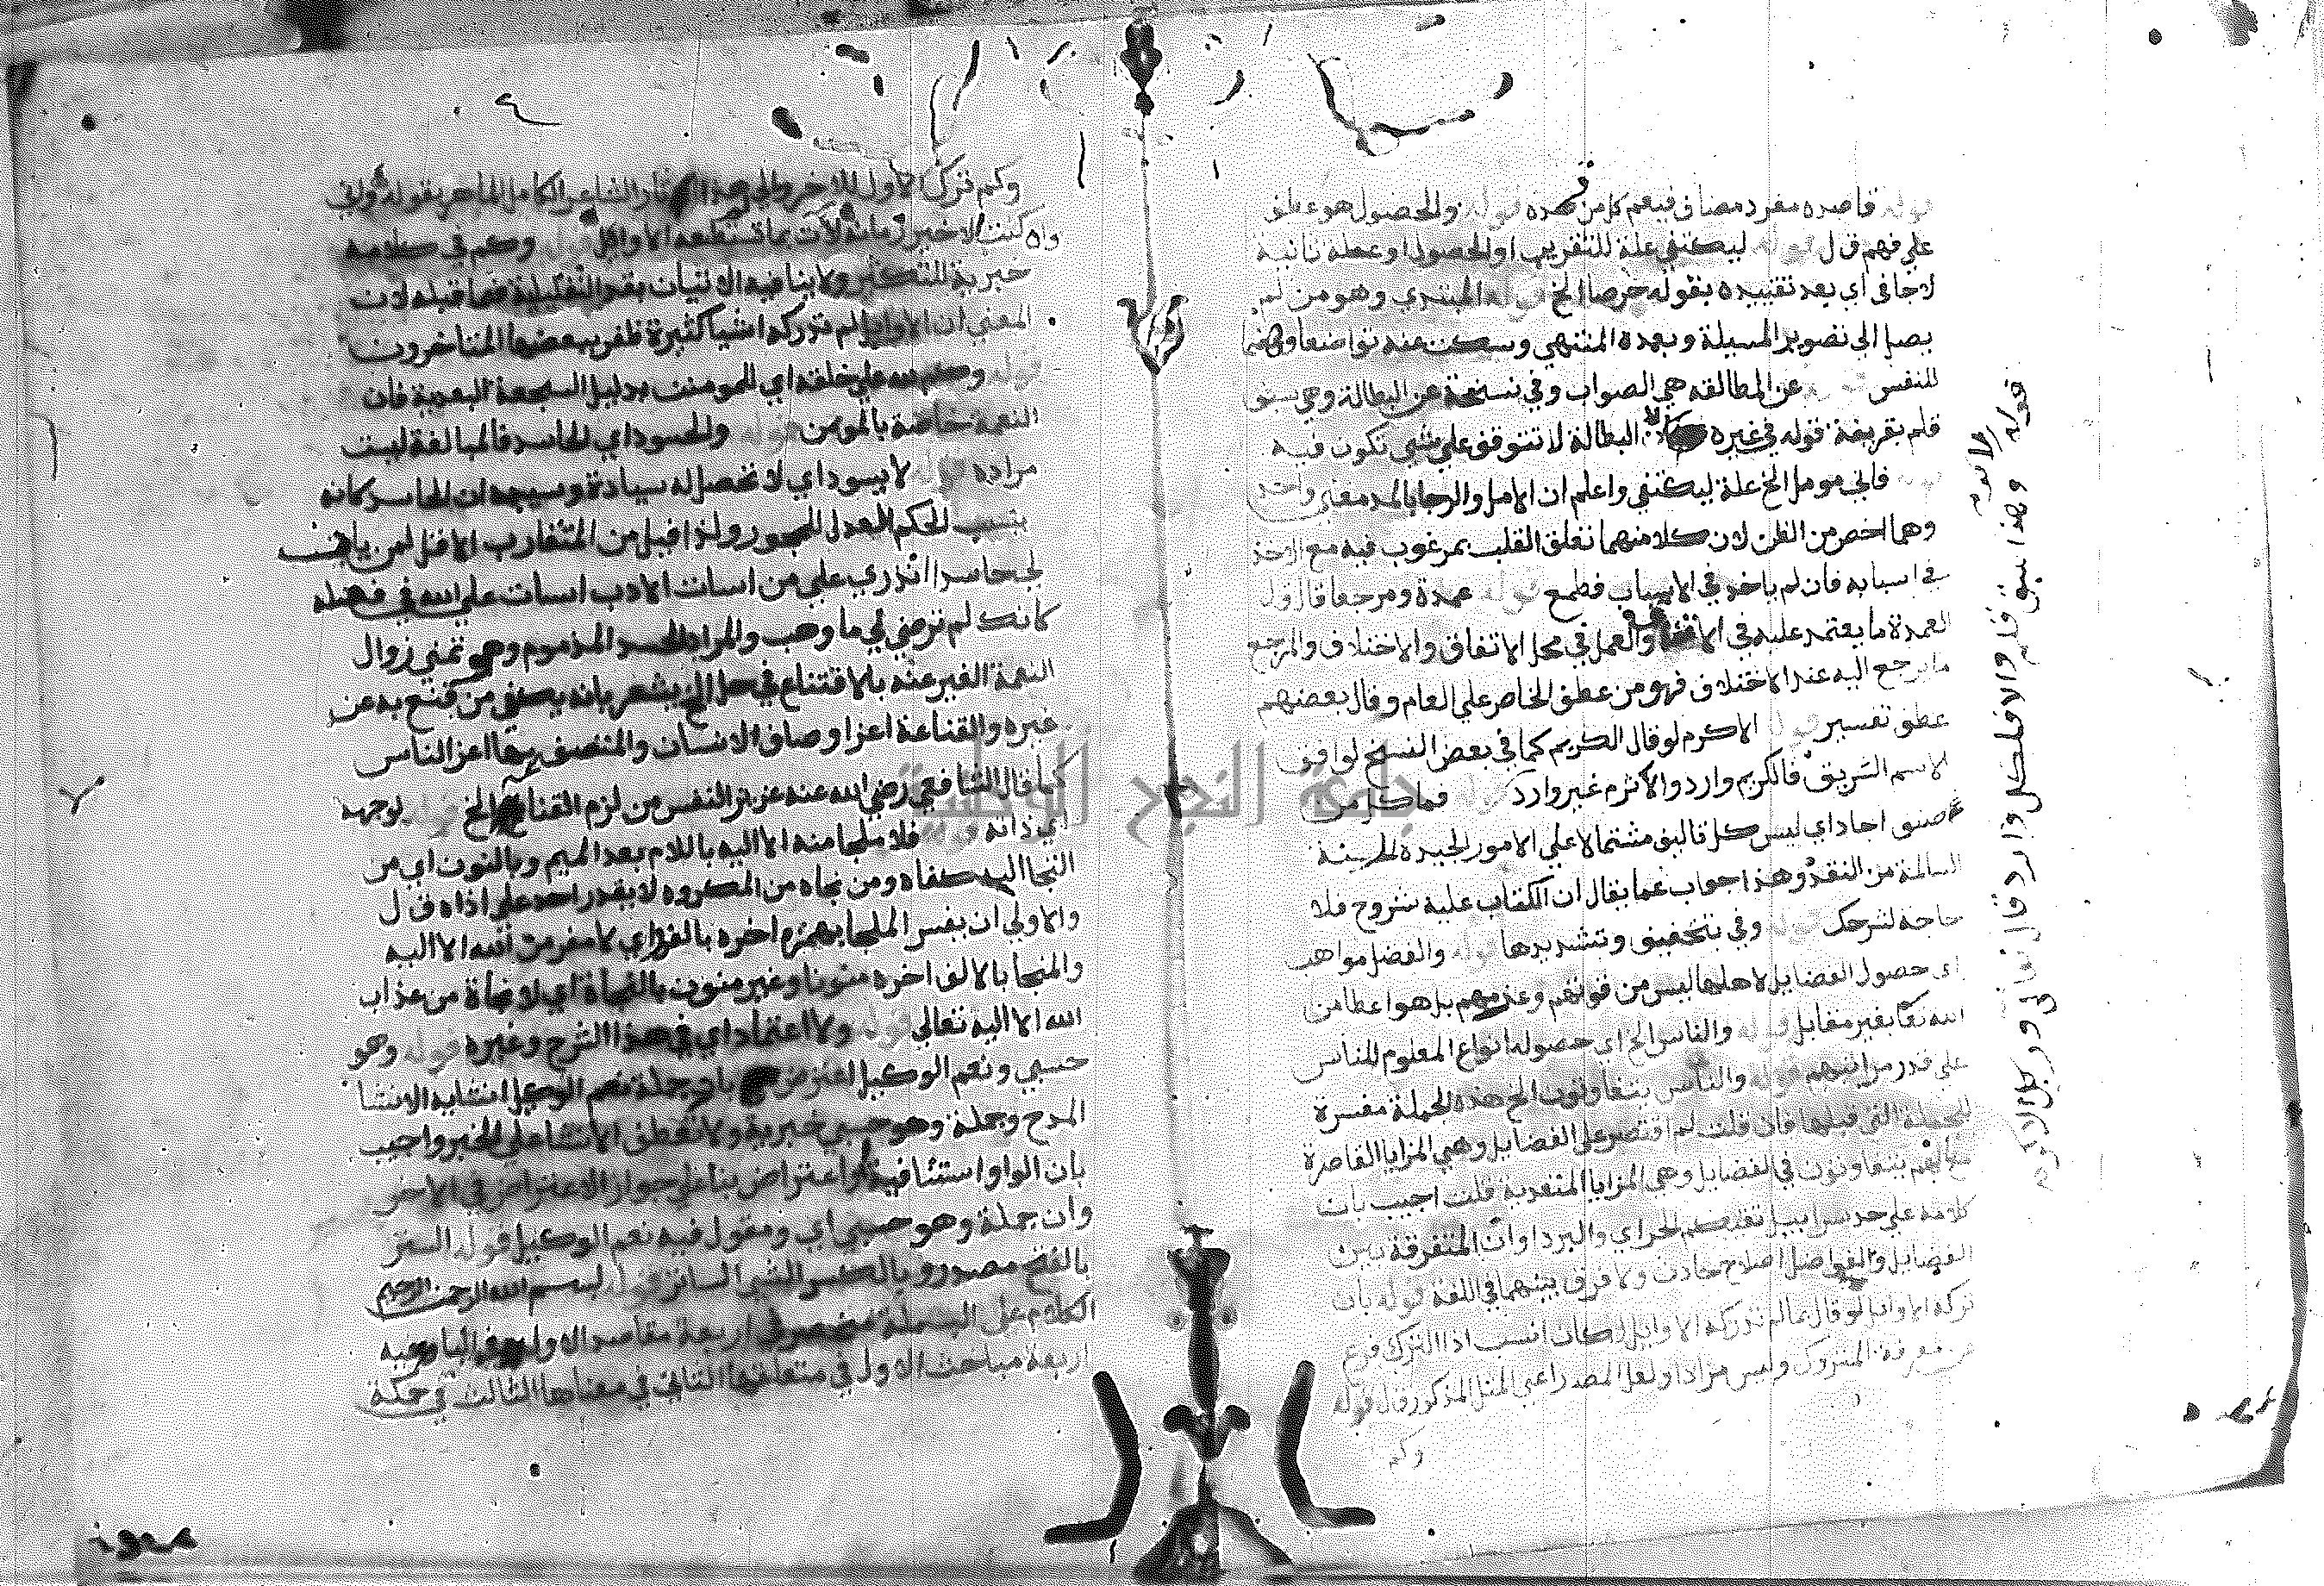 قوله قاصده مفرد مضاف فيعم كل من قصده قوله والحصول هو عطف
علي فهم ق ل قوله ليكتفي علة للتقريب او الحصول او عطف ثانية
لا جافي اي بعد تقييده بقوله حرصا الخ قوله المبتدي وهو من لم
يصل الي تصوير المسيلة وبعده المنتهي وسكت عنه تواضعا وهضما
للنفس قوله عن المطالقه هي الصواب وفي نسخة عن البطالة وهي سبق
قلم بقرينة قوله في غيره لان البطالة لا تتوقف علي شي تكون فيه
قوله فاني مومل الخ علة ليكتفي واعلم ان الامل والرجا بالمد معني واحد
وهما اخص من الظن لان كلا منهما تعلق القلب بمرغوب فيه مع الاخذ
في اسبابه فان لم ياخذ في الاسباب فطمع قوله عمدة ومرجعا قال ق ل
العمدة ما يعتمد عليه في الافتا والعمل في محل الاتفاق والاختلاف والمرجع
ما يرجع اليه عند الاختلاف فهو من عطف الخاص علي العام وقال بعضهم
عطف تفسير قوله الاكرم لو قال الكريم كما في بعض النسخ لوافق
الاسم الشريف فالكريم وارد والاكرم غير وارد قوله فما كل من
صنف اجاد اي ليس كل تاليف مشتملا علي الامور الجيدة الحسينة
السالمة من النقد وهذا جواب عما يقال ان الكتاب عليه شروح فلا
حاجة لشرحك قوله وفي بتخفيف وتشديدها قوله والفضل مواهب
اي حصول الفضايل لاهلها ليس من قوتهم وعزمهم بل هو اعطا من
الله تعا بغير مقابل قوله والناس الخ اي حصوله انواع العلوم للناس
علي قدر مراتبهم قوله والناس يتفاوتون الخ هذه الجملة مفسرة
للجملة التي قبلها فان قلت لم اقتصر علي الفضايل وهي المزايا القاصرة
مع انهم يتفاوتون في الفضايل وهي المزايا المتعدية قلت اجيب بان
كلامه علي حد سرابيل تقيكم الحر اي والبرد او ان المتفرقة بين
الفضايل والفواضل اصلاح حادث ولا فرق بينهما في اللغة قوله بان
تركه الاوايل لو قال بما لم تدركه الاوايل لكان انسب اذ الترك فرع
عن معرفة المتروك وليس مرادا ولعل المصدر اعني المثل المذكور قال قوله
وكم
قوله الاكرم
وهذا سبق قلم والافلكل وارد قال تعالي وربك الاكرم
٤
وكم ترك الاول للاخر والي هذا اشار الشاعر الكامل الماهر بقوله واني
وان كنت الاخير زمانه لآت بما لم تستطعه الاوايل قوله وكم في كلامه
خبرية للتكثير ولا ينافيه الاتيان بقد التقليلية فيما قبله لان
المعني ان الاوايل لم تدركه اشيا كثيرة ظفر ببعضها المتاخرون
قوله وكم لله علي خلقه اي المومنين بدليل السجعة البعدية فان
النعمة خاصة بالمومن قوله والحسود اي الحاسد فالمبالغة ليست
مرادة قوله لا يسود اي لا تحصل له سيادة وسيجد ان الحاسد كانه
بتسبب الحكم العدل للجور ولذا قيل من المتقارب الا قل لمن بات
لي حاسدا اتدري علي من اسات الادب اسات علي الله في فعله
كانك لم ترضي لي ما وهب والمراد الحسد المذموم وهو تمني زوال
النعمة الغير عنه بالاقتناع في حل الخ يشعر بانه يكتفي من قنع به عن
غيره والقناعة اعز اوصاف الانسان والمتصف بها اعز الناس
كما قال الشافعي رضي الله عنه عزيز النفس من لزم القناعة الخ قوله لوجهه
اي ذاته قوله فلا ملجا منه الا اليه باللام بعد الميم وبالنون اي من
التجا اليه كفاه ومن نجاه من المكروه لا يقدر احد علي اذاه ق ل
والاولي ان يفسر الملجا بهمزه اخره بالفر اي لا مفر من الله الا اليه
والمنجا بالالف اخره منونا وغير منون بالنجاة اي لا نجاة من عذاب
الله الا اليه تعالي قوله ولا اعتماد اي في هذا الشرح وغيره قوله وهو
حسبي ونعم الوكيل اعترض بان جملة نعم الوكيل انشايه الانشا
المدح وجملة وهو حسبي خبرية ولا تعطف الانشا علي الخبر واجيب
بان الواو استئنافية او اعتراض بنا علي جواز الاعتراض في الاخر
وان جملة وهو حسبي اي ومقول فيه نعم الوكيل قوله الستر
بالفتح مصدر وبالكسر الشي الساتر قوله بسم الله الرحمن الرحيم
الكلام علي البسملة منحصر في اربعة مقاصد الاول في البا وفيه
اربعة مباحث الاول في متعلقها الثاني في معناها الثالث في حكمة
جامعة النجاح الوطنية